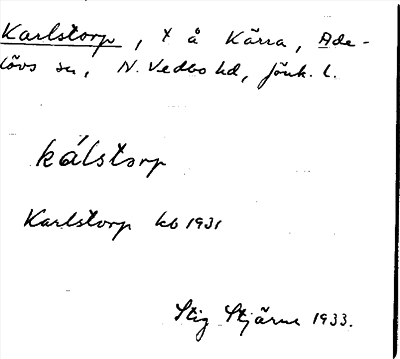 Karlstorp, t å Kärra, Ade-
lövs sn, N. Vedbo hd, Jönk. l.
kálstorp
Karlstorp kb 1931
Stig Stjärne 1933.